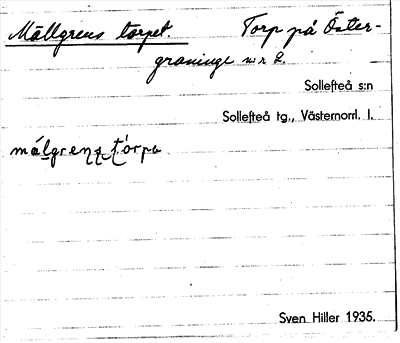 Mällgrens torpet. Torp på Öster-
graninge nr 2.
Sollefteå s:n
Sollefteå tg., Västernorrl. l.
målgrens tórpa
Sven Hiller 1935.